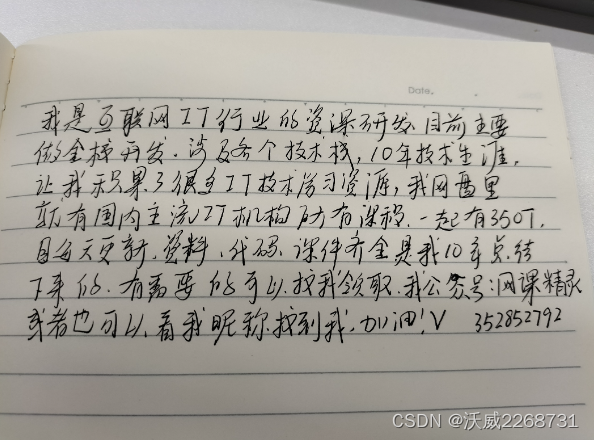 Date.
我是互联网IT行业的资深研发、目前主要
做全栈开发.涉及各个技术栈,10年技术生涯,
让我积累了很多IT技术学习资源,我网盘里
就有国内主流IT机构所有课程.一起有350T,
且每天更新,资料、代码、课件齐全是我10年总结
下来的.有需要的可以找我领取.我公众号:网课精灵
或者也可以看我昵称找到我.加油!V 352852792
CSDN @沃威2268731